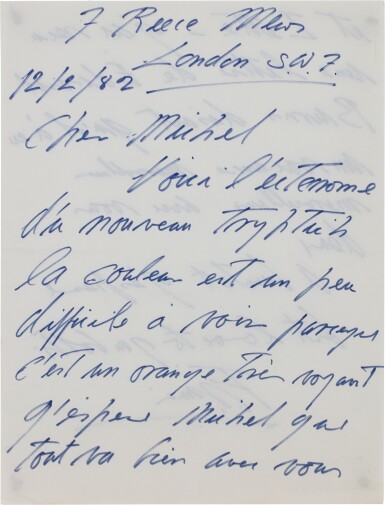 7 Reece Mews
London S.W.7.
12/2/82
Cher Michel
Voici l'ectacrome
du nouveau tryptich
la couleur est un peu
difficile a voir parceque
c'est un orange tres voyant
J'espere Michel que
tout va bien avec vous